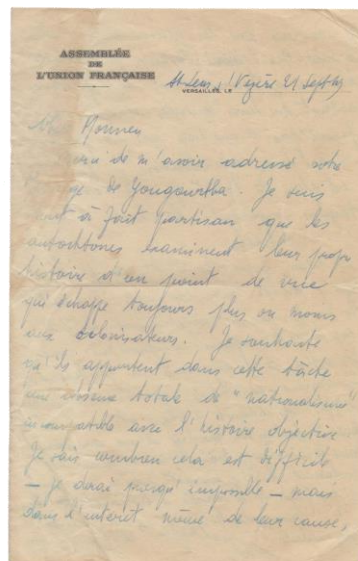 ASSEMBLÉE
DE
L'UNION FRANÇAISE
VERSAILLES, LE
St Léon s/ Vézère 21 Sept
de m'avoir adressé votre
de Yougourtha. Je suis
à fait partisan que les
autochtones examinent leur propre
histoire d'un point de vue
qui échappe toujours plus ou moins
aux colonisateurs. Je souhaite
qu'ils apportent dans cette tâche
une absence totale de "nationalisme"
incompatible avec l'histoire objective
Je sais combien cela est difficile
— je dirai presque impossible — mais
dans l'intérêt même de leur cause,